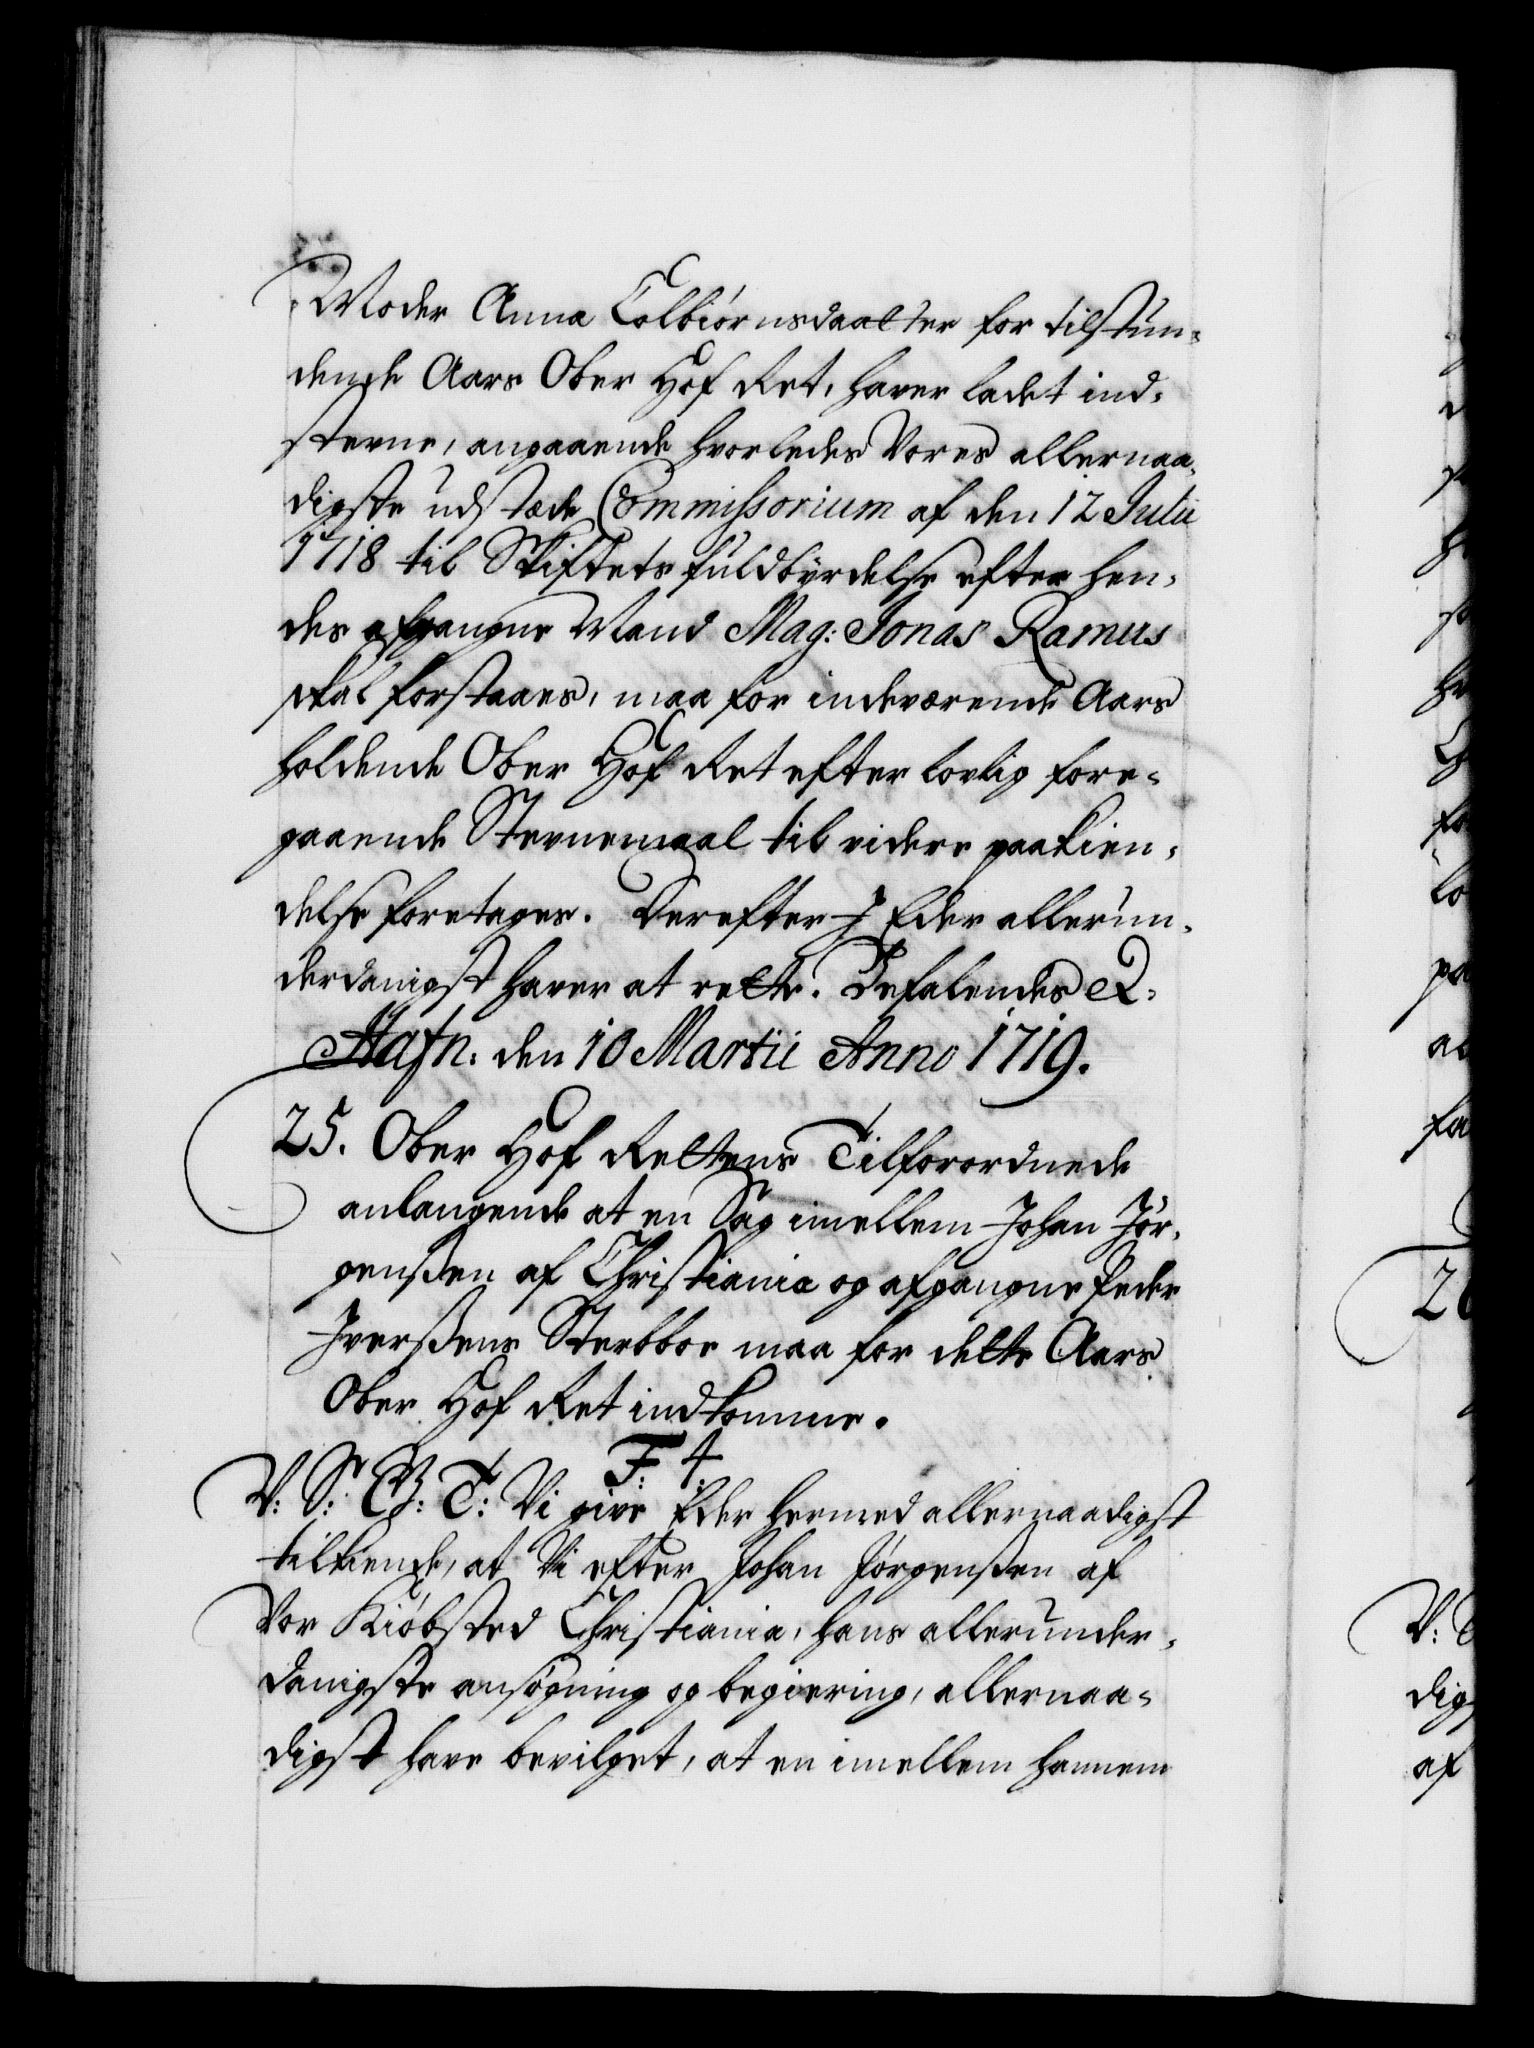 Moder Anna Colbiørnsdaatter for tilstun-
dende Aars Ober Hof Ret, haver ladet ind-
stevne, angaaende hvorledes Vores allernaa-
digste udstæde Commissorium af den 12 Julii
1718 til Skiftets fuldbyrdelse efter hen-
des afgangne Mand Mag: Jonas Ramus
skal forstaaes, maa for indeværende Aars
holdende Ober Hof Ret efter lovlig fore-
gaaende Stevnemaal til videre paakien-
delse foretages. Derefter I Eder allerun-
derdanigst haver at rette. Befalendes &
Hafn: den 10 Martii Anno 1719.
25. Ober Hof Rettens Tilforordnede
anlangende at en Sag imellem Johan Jør-
gensßen af Christiania og afgangne Peder
Iversßens Sterbboe maa for dette Aars
Ober Hof Ret indkomme.
F: 4
V: S: G: T: Vi give Eder hermed allernaadigst
tilkiende, at Vi efter Johan Jørgensßen af
Vor Kiøbsted Christiania, hans allerunder-
danigste ansøgning og begiering, allernaa-
digst have bevilget, at en imellem hannem